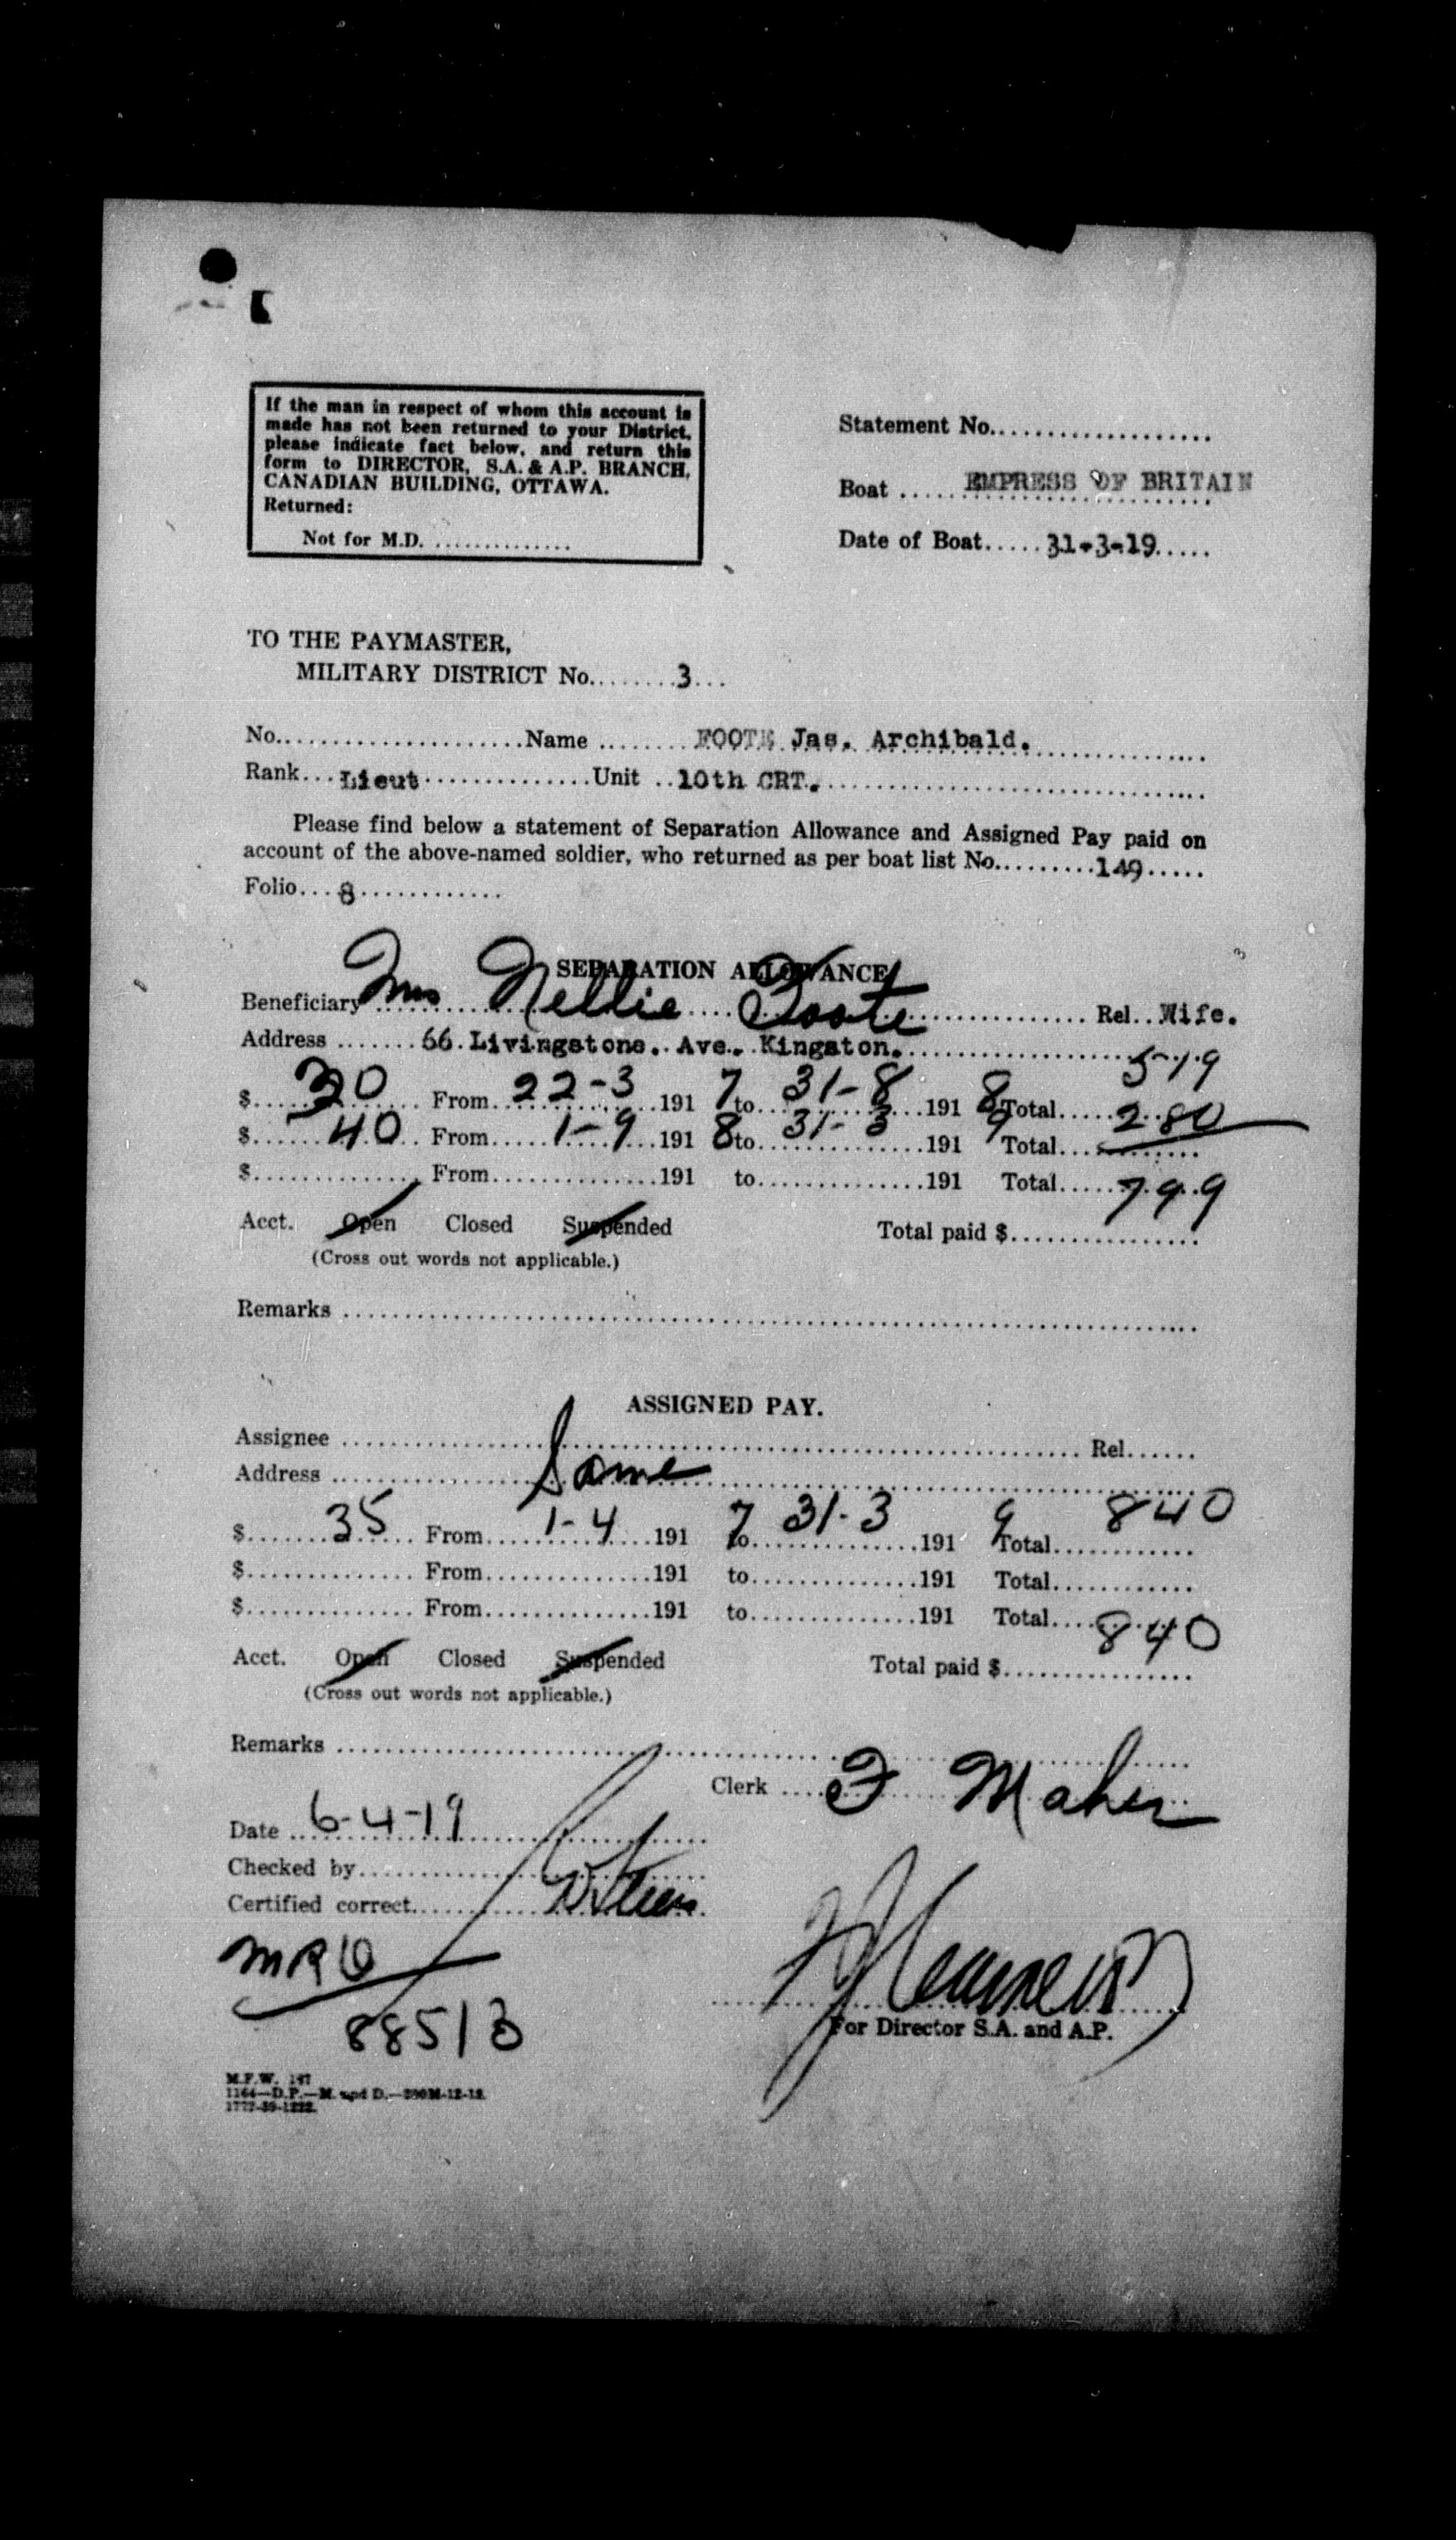 If the man in respect of whom this account is
made has not been returned to your District,
please indicate fact below, and return this
form to DIRECTOR, S.A. & A.P. BRANCH,
CANADIAN BUILDING, OTTAWA.
Returned:
Not for M.D. ..............
Statement No...................
Boat ..... EMPRESS OF BRITAIN
Date of Boat..... 31-3-19.....
TO THE PAYMASTER,
MILITARY DISTRICT No........3...
No.....................Name ........FOOTE Jas. Archibald.
Rank...Lieut...............Unit ..10th CRT.
Please find below a statement of Separation Allowance and Assigned Pay paid on
account of the above-named soldier, who returned as per boat list No.........149.....
Folio...8............
SEPARATION ALLOWANCE
Beneficiary Mrs Nellie Foote Rel...Wife.
Address .......66 Livingstone. Ave. Kingston.
$.....30..... From 22-3 191 7 to 31-8 191 8 Total 519
$.....40.. From 1-9 191 8 to 31-3 191 9 Total 280
$.............. From..............191 to..............191 Total.....799
Acct. Open Closed Suspended Total paid $................
(Cross out words not applicable.)
Remarks ................
ASSIGNED PAY.
Assignee ................ Rel......
Address ................ Same
$.......35.... From 1-4 191 7 to 31-3 191 9 Total 840
$.............. From..............191 to..............191 Total............
$.............. From..............191 to..............191 Total....840
Acct. Open Closed Suspended Total paid $................
(Cross out words not applicable.)
Remarks ................
Clerk .... F Maher
Date .. 6-4-19
Checked by................
Certified correct................
MRO
88513
For Director S.A. and A.P.
M.F.W. 187